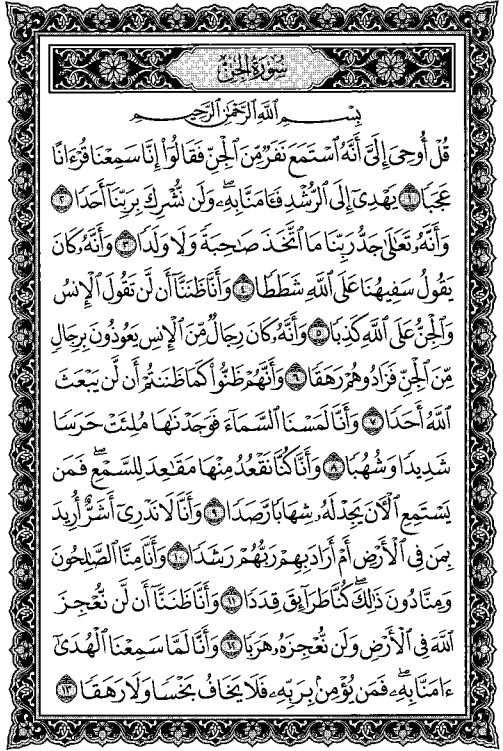 سُورَةُ الجِنِّ
بِسْمِ اللَّهِ الرَّحْمَٰنِ الرَّحِيمِ
قُلْ أُوحِىَ إِلَىَّ أَنَّهُ ٱسْتَمَعَ نَفَرٌ مِّنَ ٱلْجِنِّ فَقَالُوٓا۟ إِنَّا سَمِعْنَا قُرْءَانًا
عَجَبًا ١ يَهْدِىٓ إِلَى ٱلرُّشْدِ فَـَٔامَنَّا بِهِۦ ۖ وَلَن نُّشْرِكَ بِرَبِّنَآ أَحَدًا ٢
وَأَنَّهُۥ تَعَـٰلَىٰ جَدُّ رَبِّنَا مَا ٱتَّخَذَ صَـٰحِبَةً وَلَا وَلَدًا ٣ وَأَنَّهُۥ كَانَ
يَقُولُ سَفِيهُنَا عَلَى ٱللَّهِ شَطَطًا ٤ وَأَنَّا ظَنَنَّآ أَن لَّن تَقُولَ ٱلْإِنسُ
وَٱلْجِنُّ عَلَى ٱللَّهِ كَذِبًا ٥ وَأَنَّهُۥ كَانَ رِجَالٌ مِّنَ ٱلْإِنسِ يَعُوذُونَ بِرِجَالٍ
مِّنَ ٱلْجِنِّ فَزَادُوهُمْ رَهَقًا ٦ وَأَنَّهُمْ ظَنُّوا۟ كَمَا ظَنَنتُمْ أَن لَّن يَبْعَثَ
ٱللَّهُ أَحَدًا ٧ وَأَنَّا لَمَسْنَا ٱلسَّمَآءَ فَوَجَدْنَـٰهَا مُلِئَتْ حَرَسًا
شَدِيدًا وَشُهُبًا ٨ وَأَنَّا كُنَّا نَقْعُدُ مِنْهَا مَقَـٰعِدَ لِلسَّمْعِ ۖ فَمَن
يَسْتَمِعِ ٱلْـَٔانَ يَجِدْ لَهُۥ شِهَابًا رَّصَدًا ٩ وَأَنَّا لَا نَدْرِىٓ أَشَرٌّ أُرِيدَ
بِمَن فِى ٱلْأَرْضِ أَمْ أَرَادَ بِهِمْ رَبُّهُمْ رَشَدًا ١٠ وَأَنَّا مِنَّا ٱلصَّـٰلِحُونَ
وَمِنَّا دُونَ ذَٰلِكَ ۖ كُنَّا طَرَآئِقَ قِدَدًا ١١ وَأَنَّا ظَنَنَّآ أَن لَّن نُّعْجِزَ
ٱللَّهَ فِى ٱلْأَرْضِ وَلَن نُّعْجِزَهُۥ هَرَبًا ١٢ وَأَنَّا لَمَّا سَمِعْنَا ٱلْهُدَىٰٓ
ءَامَنَّا بِهِۦ ۖ فَمَن يُؤْمِنۢ بِرَبِّهِۦ فَلَا يَخَافُ بَخْسًا وَلَا رَهَقًا ١٣